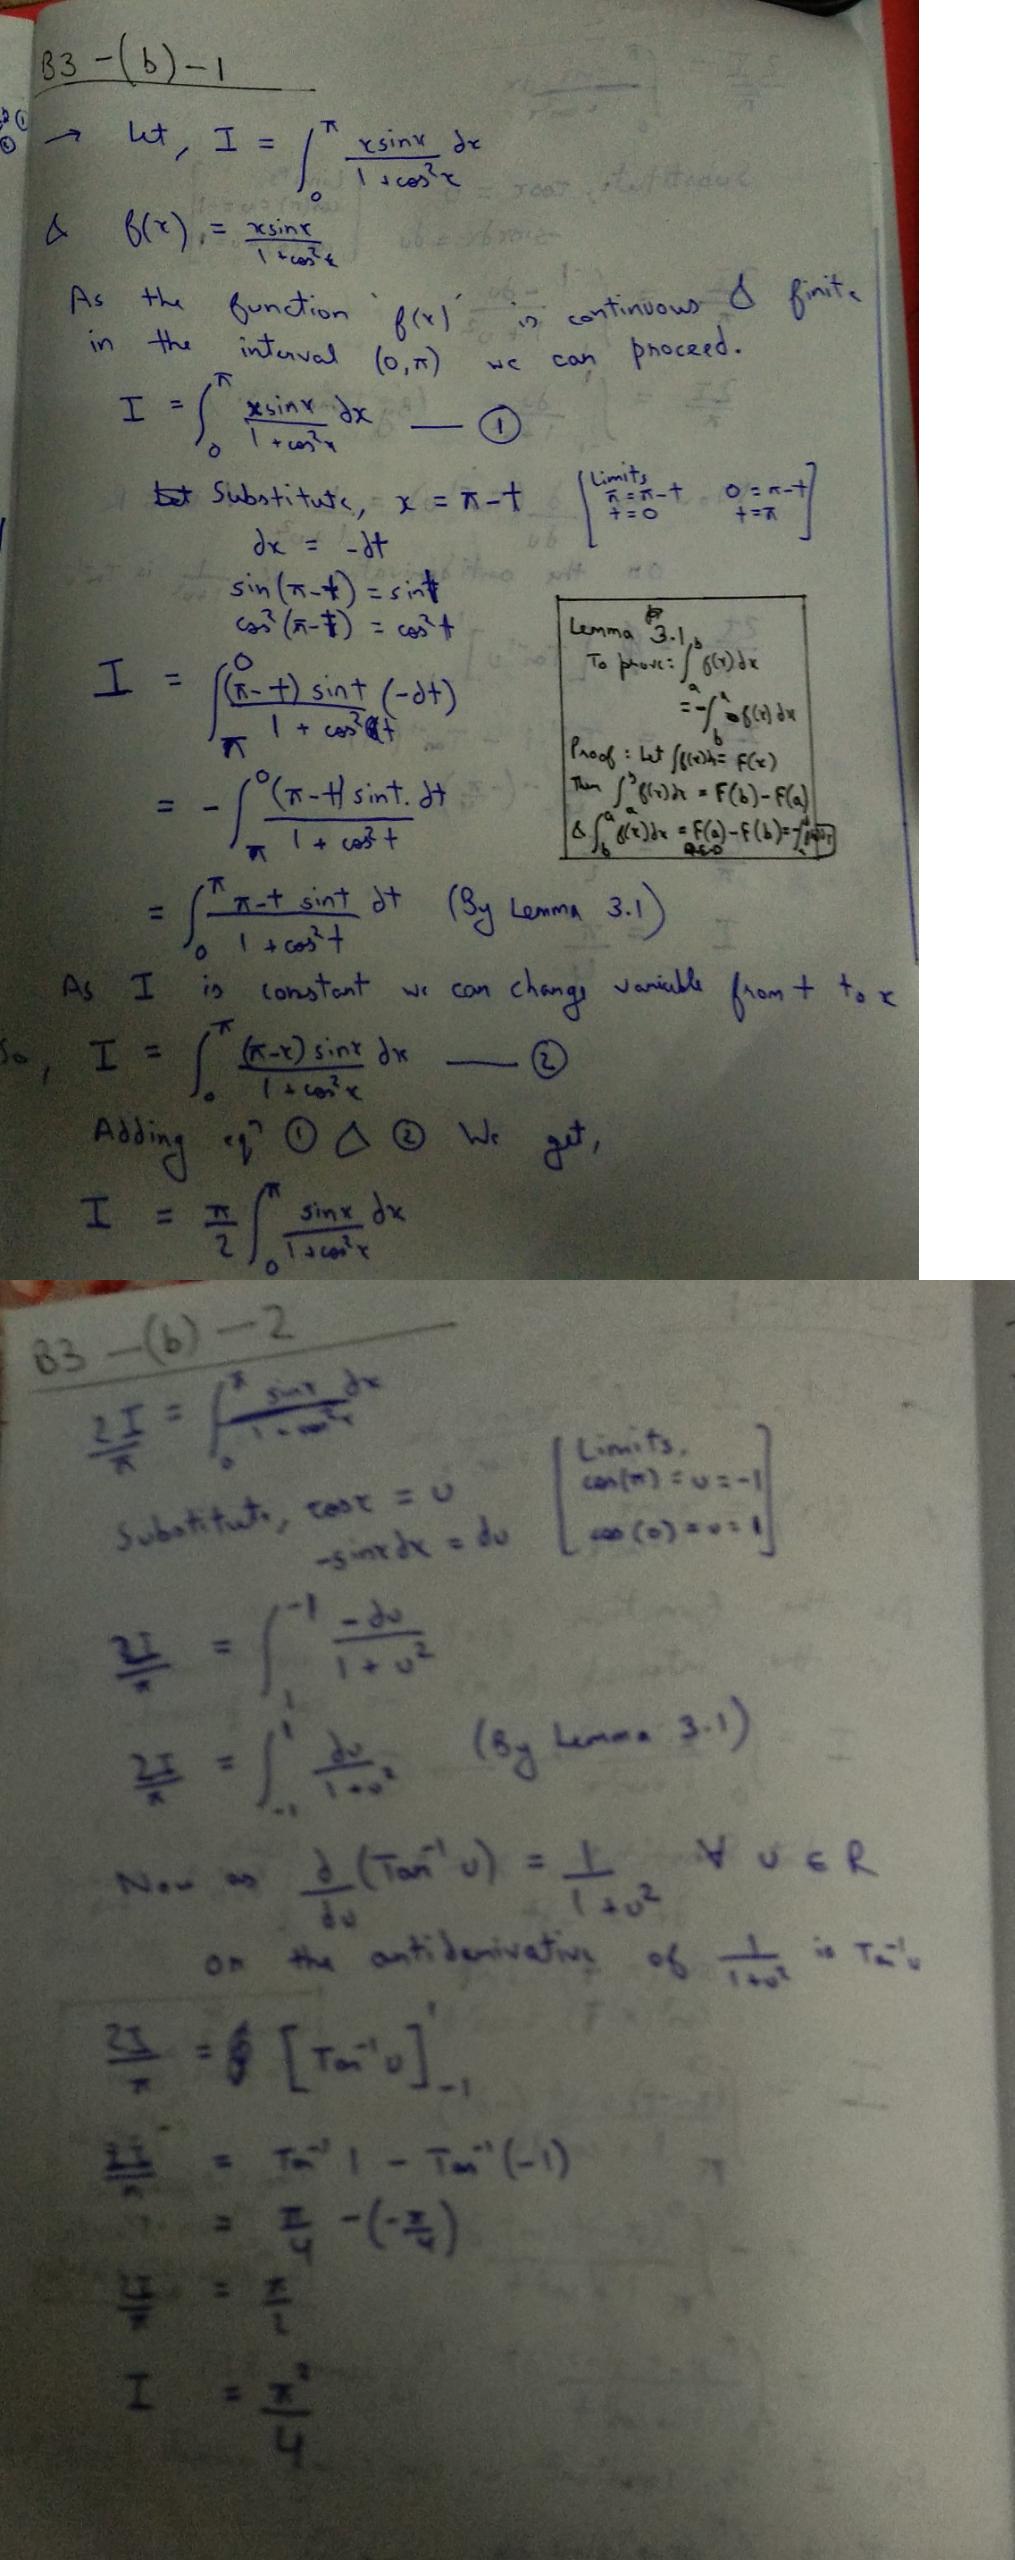 B3 - (b) - 1
→ Let, I = ∫₀^π xsinx/(1+cos²x) dx
& f(x) = xsinx/(1+cos²x)
As the function 'f(x)' is continuous & finite
in the interval (0,π) we can proceed.
I = ∫₀^π xsinx/(1+cos²x) dx — ①
Substitute, x = π-t
dx = -dt
[Limits
π=π-t 0=π-t
t=0 t=π]
sin(π-t) = sint
cos²(π-t) = cos²t
I = ∫_π^0 (π-t) sint/(1+cos²t) (-dt)
= - ∫_π^0 (π-t) sint. dt/(1+cos²t)
= ∫₀^π π-t sint/(1+cos²t) dt (By Lemma 3.1)
Lemma 3.1
To prove: ∫_a^b f(x)dx
= -∫_b^a f(x)dx
Proof: Let ∫f(x)dx = F(x)
Then ∫_a^b f(x)dx = F(b)-F(a)
& ∫_b^a f(x)dx = F(a)-F(b) =
As I is constant we can change variable from t to x
So, I = ∫₀^π (π-x) sinx/(1+cos²x) dx — ②
Adding eqⁿ ① & ② We get,
I = π/2 ∫₀^π sinx/(1+cos²x) dx
B3 - (b) - 2
2I/π = ∫₀^π sinx dx/(1+cos²x)
Substitute, cosx = u
-sinxdx = du
[Limits.
cos(π) = u = -1
cos(0) = u = 1]
2I/π = ∫_1^-1 -du/(1+u²)
2I/π = ∫_-1^1 du/(1+u²) (By Lemma 3.1)
Now as d/du (Tan⁻¹u) = 1/(1+u²) ∀ u ∈ R
or the antiderivative of 1/(1+u²) is Tan⁻¹u
2I/π = [Tan⁻¹u]_-1^1
2I/π = Tan⁻¹1 - Tan⁻¹(-1)
= π/4 - (-π/4)
2I/π = π/2
I = π²/4